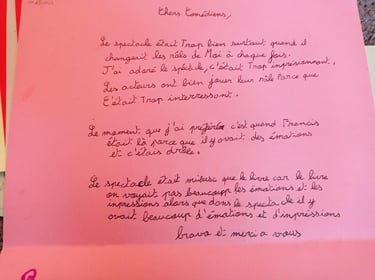 Chers Comédiens,
Le spectacle était Trop bien surtout quand il
changeait les rôls de Moi à chaque fois.
J'ai adoré le spéctcle, c'était Trop imprésionnant.
Les acteurs ont bien jouer leur rôle Parce que
C'était Trop interressant.
Le moment que j'ai préférer c'est quand Francis
était là parce que il y avait des émotions
et c'étais drôle.
Le spectacle était mieusc que le livre car le livre
on voyait pas beaucoup les émotions et les
inpressions alors que dans le spectacle il y
avait beaucoup d'émotions et d'impressions
bravo et merci a vous